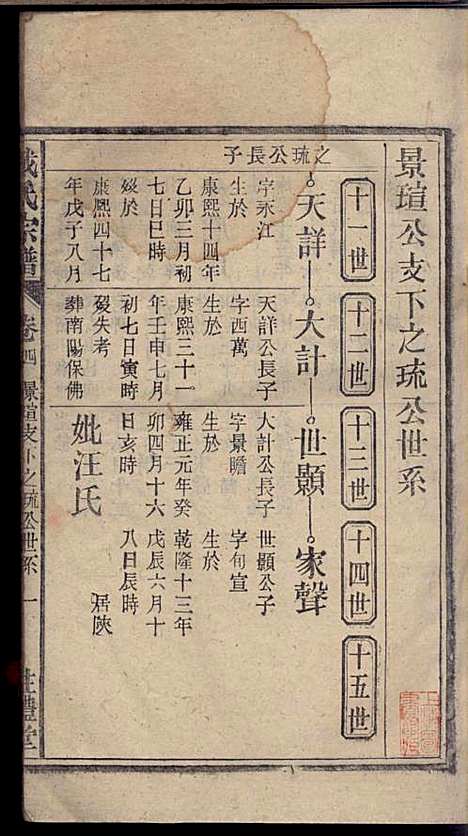 景瑄公支下之琉公世系
十一世
十二世
十三世
十四世
十五世
之琉公長子
天詳
大計
世顯
家聲
字永江
生於
康熙十四年
乙卯三月初
七日巳時
歿於
康熙四十七
年戊子八月
天詳公長子
字西萬
生於
康熙三十一
年壬申七月
初七日寅時
歿失考
葬南陽保佛
大計公長子
字景瞻
生於
雍正元年癸
卯四月十六
日亥時
妣汪氏
世顯公子
字旬宣
生於
乾隆十三年
戊辰六月十
八日辰時
居陝
氏宗譜
卷四
景瑄支下之琉公世系
一
禮堂